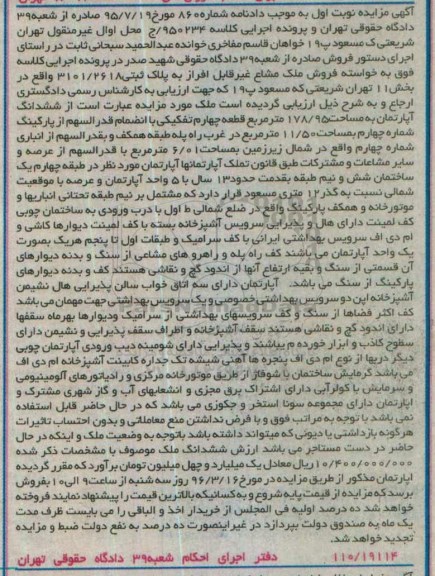 آگهی مزایده نوبت اول به موجب دادنامه شماره۸۶۰ مورخ۹۵/۷/۱۹ صادره از شعبه۳۹
دادگاه حقوقی تهران و پرونده اجرایی کلاسه ۹۵۰۲۳۴/ج محل اوال غیرمنقول تهران
شریعتی ک مسعود پ۱۹ خواهان قاسم مفاخری خوانده عبدالحمید سبحانی ثابت در راستای
اجرای دستور فروش صادره از شعبه۳۹ دادگاه حقوقی شهید صدر در پرونده اجرایی کلاسه
فوق به خواسته فروش ملک مشاع غیرقابل افراز به پلاک ثبتی۳۱۰۱/۲۶۱۸ واقع در
بخش۱۱ تهران شریعتی ک مسعود پ۱۹ که جهت ارزیابی به کارشناس رسمی دادگستری
ارجاع و به شرح ذیل ارزیابی گردیده است ملک مورد مزایده عبارت است از ششدانگ
آپارتمان به مساحت۱۷۸/۹۵ مترمربع قطعه چهارم تفکیکی با انضمام قدرالسهم از پارکینگ
شماره چهارم بمساحت۱۱/۵۰ مترمربع در غرب راه پله طبقه همکف و بقدرالسهم از انباری
شماره چهارم واقع در شمال زیرزمین بمساحت۶/۰۱ مترمربع با قدرالسهم از عرصه و
سایر مشاعات و مشترکات طبق قانون تملک آپارتمانها آپارتمان مورد نظر در طبقه چهارم یک
ساختمان شش و نیم طبقه بقدمت حدود۱۳ سال با ۵ واحد آپارتمان و عرصه با موقعیت
شمالی نسبت به گذر۱۲ متری مسعود قرار دارد که مشتمل بر نیم طبقه تحتانی انباریها و
موتورخانه و همکف پارکینگ واقع در ضلع شمالی ط اول با درب ورودی به ساختمان چوبی
کف لمینت دارای هال و پذیرایی سرویس آشپزخانه بسته با کف لمینت دیوارها کاشی و
ام دی اف سرویس بهداشتی ایرانی با کف سرامیک و طبقات اول تا پنجم هریک بصورت
یک واحد آپارتمان می باشند کف راه پله و راهرو های مشاعی از سنگ و بدنه دیوارهای
آن قسمتی از سنگ و بقیه ارتفاع آنها از اندود گچ و نقاشی هستند کف و بدنه دیوارهای
پارکینگ از سنگ می باشد. آپارتمان دارای سه اتاق خواب سالن پذیرایی هال نشیمن
آشپزخانه اپن دو سرویس بهداشتی خصوصی و یک سرویس بهداشتی جهت مهمان می باشد
کف اکثر فضاها از سنگ و کف سرویسهای بهداشتی از سرامیک ودیوارها بهرماه سقفها
دارای اندود گچ و نقاشی هستند سقف آشپزخانه و اطراف سقف پذیرایی و نشیمن دارای
سطوح کاذب و ابزار خورده م یباشند و پذیرایی دارای شومینه دیب ورودی آپارتمان چوبی
دیگر دربها از نوع ام دی اف پنجره ها آهنی شیشه تک جداره کابینت آشپزخانه ام دی اف
می باشد گرمایش ساختمان با شوفاژ از طریق موتورخانه مرکزی و رادیاتورهای آلومینیومی
و سرمایش با کولرآبی دارای اشتراک برق مجزی و انشعابهای آب و گاز شهری مشترک و
اپارتمان دارای مجموعه سونا استخر و جکوزی می باشد که در حال حاضر قابل استفاده
نمی باشد با توجه به مراتب فوق و با فرض نداشتن منع معاملاتی و بدون احتساب تاثیرات
هرگونه بازداشتی یا دیونی که میتواند داشته باشد باتوجه به وضعیت ملک و اینکه در حال
حاضر در دست مستاجر می باشد ارزش ششدانگ ملک موصوف با مشخصات ذکر شده
۱۰/۴۰۰/۰۰۰/۰۰۰ریال معادل یک میلیارد و چهل میلیون تومان برآورد که مقرر گردیده
اپارتمان مذکور از طریق مزایده در مورخ۹۶/۳/۱۶ روز سه شنبه از ساعت۹ الی۱۰ بفروش
برسد که مزایده از قیمت پایه شروع و به کسانیکه بالاترین قیمت را پیشنهاد نمایند فروخته
خواهد شد ده درصد اولیه فی المجلس از خریدار اخذ و الباقی را می بایست ظرف مدت
یک ماه به صندوق دولت بپردازد در غیر اینصورت ده درصد به نفع دولت ضبط و مزایده
تجدید خواهد شد.
۱۱۰/۱۹۱۱۴ دفتر اجرای احکام شعبه۳۹ دادگاه حقوقی تهران